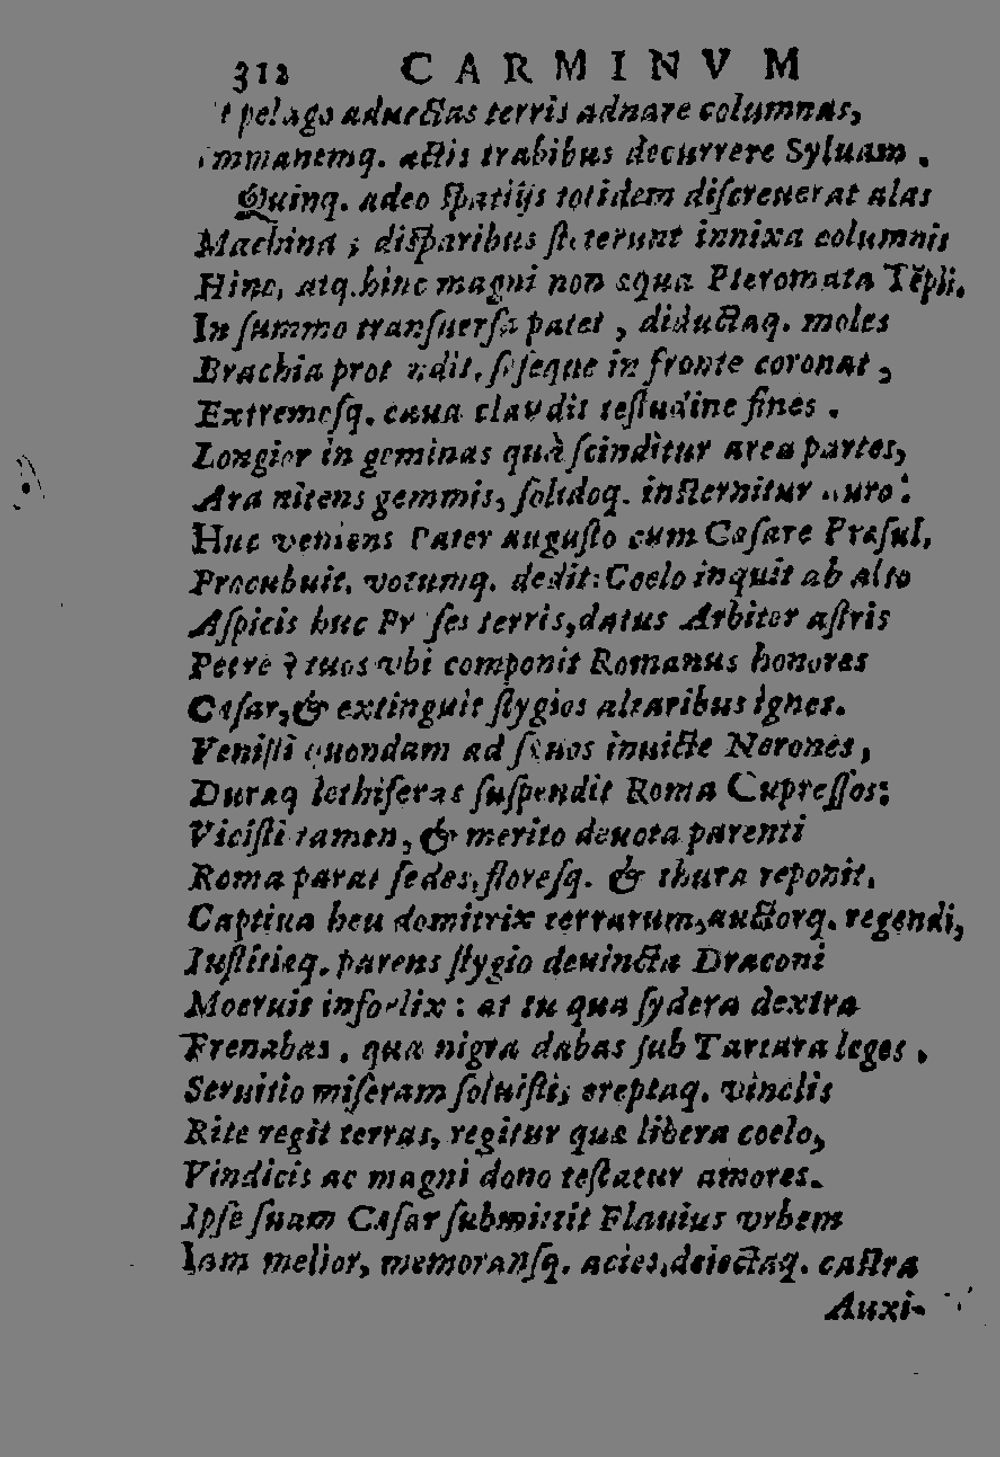 312 CARMINVM
pelago aduectas terris adnare columnas,
actis trabibus decurrere Syluam.
Quinq. adeo spatijs totidem discreuerat alas
Machina; disparibus steterunt innixa columnis
Hinc, atq. hinc magni non æqua Pteromata Tẽpli.
In summo transuersa patet, diductaq. moles
Brachia prot ndit, seseque in fronte coronat,
Extremosq. caua claudit testudine fines.
Longior in geminas quà scinditur area partes,
Ara nitens gemmis, solidoq. insternitur auro:
Huc veniens Pater augusto cum Cæsare Præsul,
Procubuit, votumq. dedit: Coelo inquit ab alto
Aspicis huc Præses terris, datus Arbiter astris
Petre? tuos vbi componit Romanus honores
Cæsar, & extinguit stygios altaribus ignes.
Venisti quondam ad sæuos inuicte Nerones,
Duraq lethiferas suspendit Roma Cupressos:
Vicisti tamen, & merito deuota parenti
Roma parat sedes, floresq. & thura reponit.
Captiua heu domitrix terrarum, auctorq. regendi,
Iustitiæq. parens stygio deuincta Draconi
Moeruit infoelix: at tu qua sydera dextra
Frenabas, qua nigra dabas sub Tartara leges,
Seruitio miseram soluisti; ereptaq. vinclis
Rite regit terras, regitur quæ libera coelo,
Vindicis ac magni dono testatur amores.
Ipse suam Cæsar submittit Flauius vrbem
Iam melior, memoransq. acies, deiectaq. castra
Auxi-